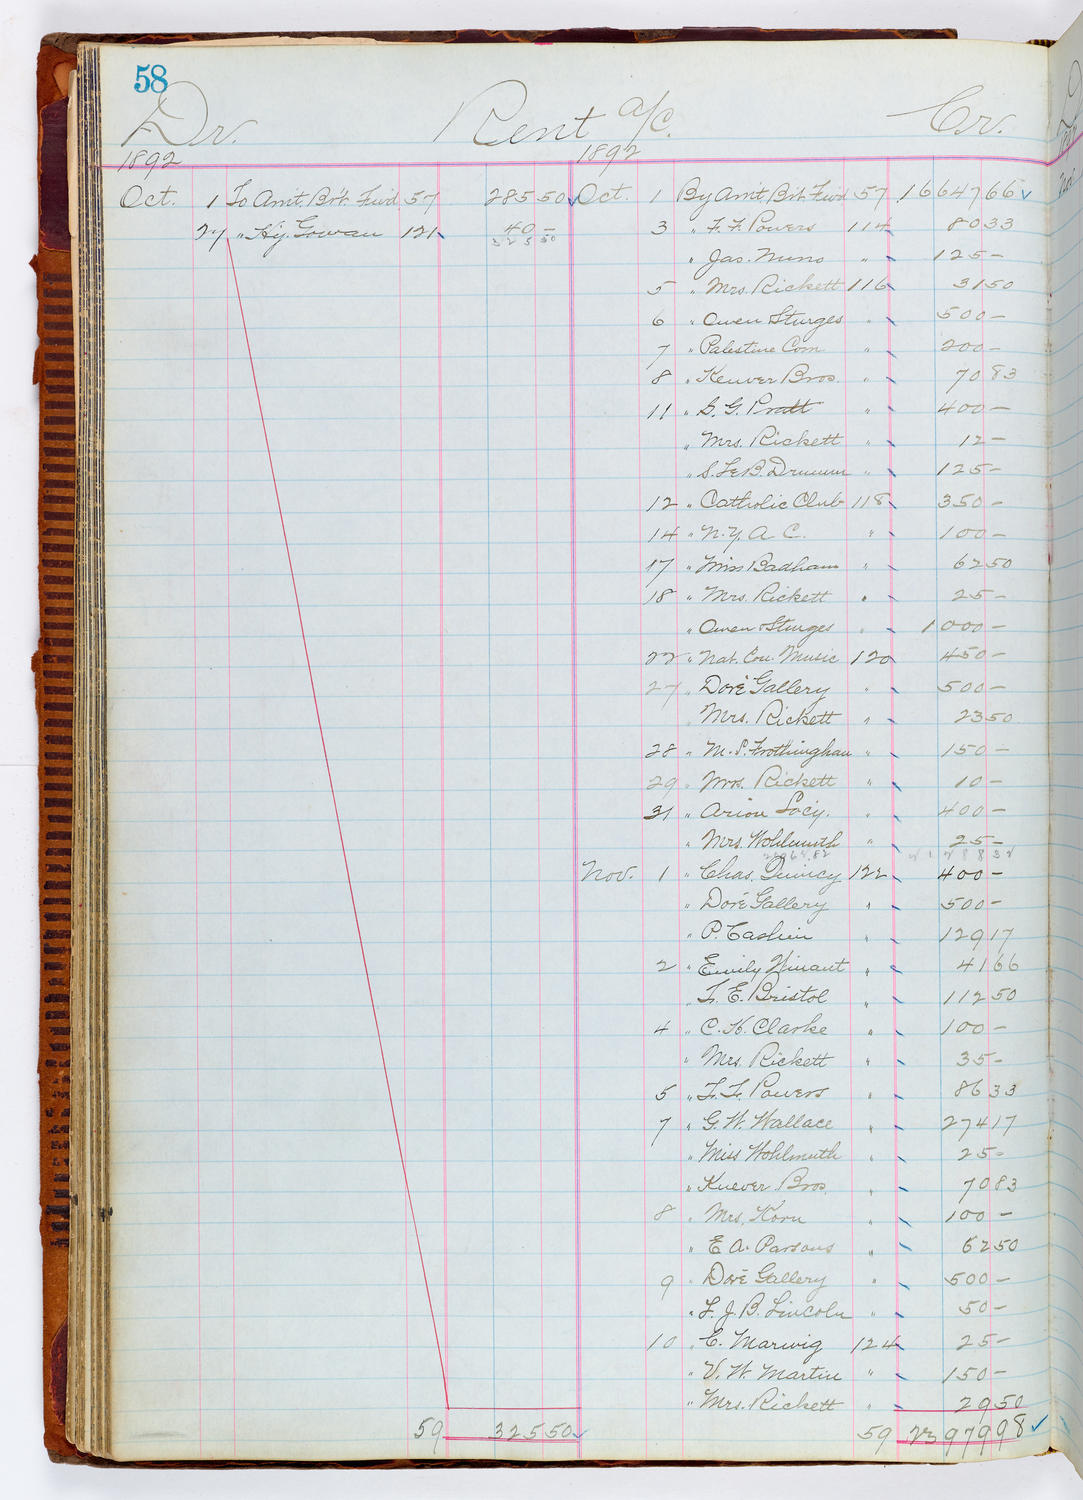 58
Dr. Rent a/c. Cr.
1892 1892
Oct. 1 To Am't. Br't. Fwd 57 285 50 Oct. 1 By Am't. Br't. Fwd 57 16647 66
27 " Hy. Gowan 121 40 — 3 " F. F. Powers 114 80 33
325 50
" Jas. Nuno " 125 —
5 " Mrs. Rickett 116 31 50
6 " Owen Sturges " 500 —
7 " Palestine Com " 200 —
8 " Keuver Bros. " 70 83
11 " S. G. Pratt " 400 —
" Mrs. Rickett " 12 —
" S. Le B. Drumm " 125 —
12 " Catholic Club 118 350 —
14 " N. Y. A. C. " 100 —
17 " Miss Badham " 62 50
18 " Mrs. Rickett " 25 —
" Owen Sturges " 1000 —
22 " Nat. Con. Music 120 450 —
27 " Doré Gallery " 500 —
Mrs. Rickett " 23 50
28 " M. P. Frothingham " 150 —
29 " Mrs. Rickett " 10 —
31 " Arion Socy. " 400 —
" Mrs. Wohlmuth " 25 —
Nov. 1 " Chas. Quincy 122 400 —
" Doré Gallery " 500 —
" P. Cashin " 129 17
2 " Emily Winant " 41 66
" F. E. Bristol " 112 50
4 " C. H. Clarke " 100 —
" Mrs. Rickett " 35 —
5 " F. F. Powers " 86 33
7 " G. W. Wallace " 274 17
" Miss Wohlmuth " 25 —
" Kuever Bros. " 70 83
8 " Mrs. Korn " 100 —
" E. A. Parsons " 62 50
9 " Doré Gallery " 500 —
" F. J. B. Lincoln " 50 —
10 " C. Marwig 124 25 —
" V. W. Martin " 150 —
" Mrs. Rickett " 29 50
59 325 50 59 23979 98